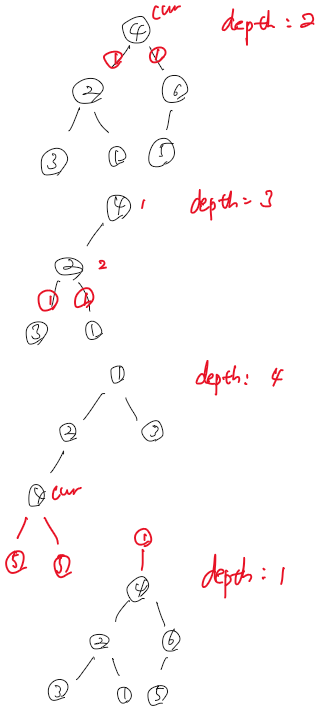 cur
4 depth: 2
1 1
2 6
3 1 5
4 1 depth: 3
2 2
1 1
3 1
1 depth: 4
2 3
cur
5 5
1
4 depth: 1
2 6
3 1 5